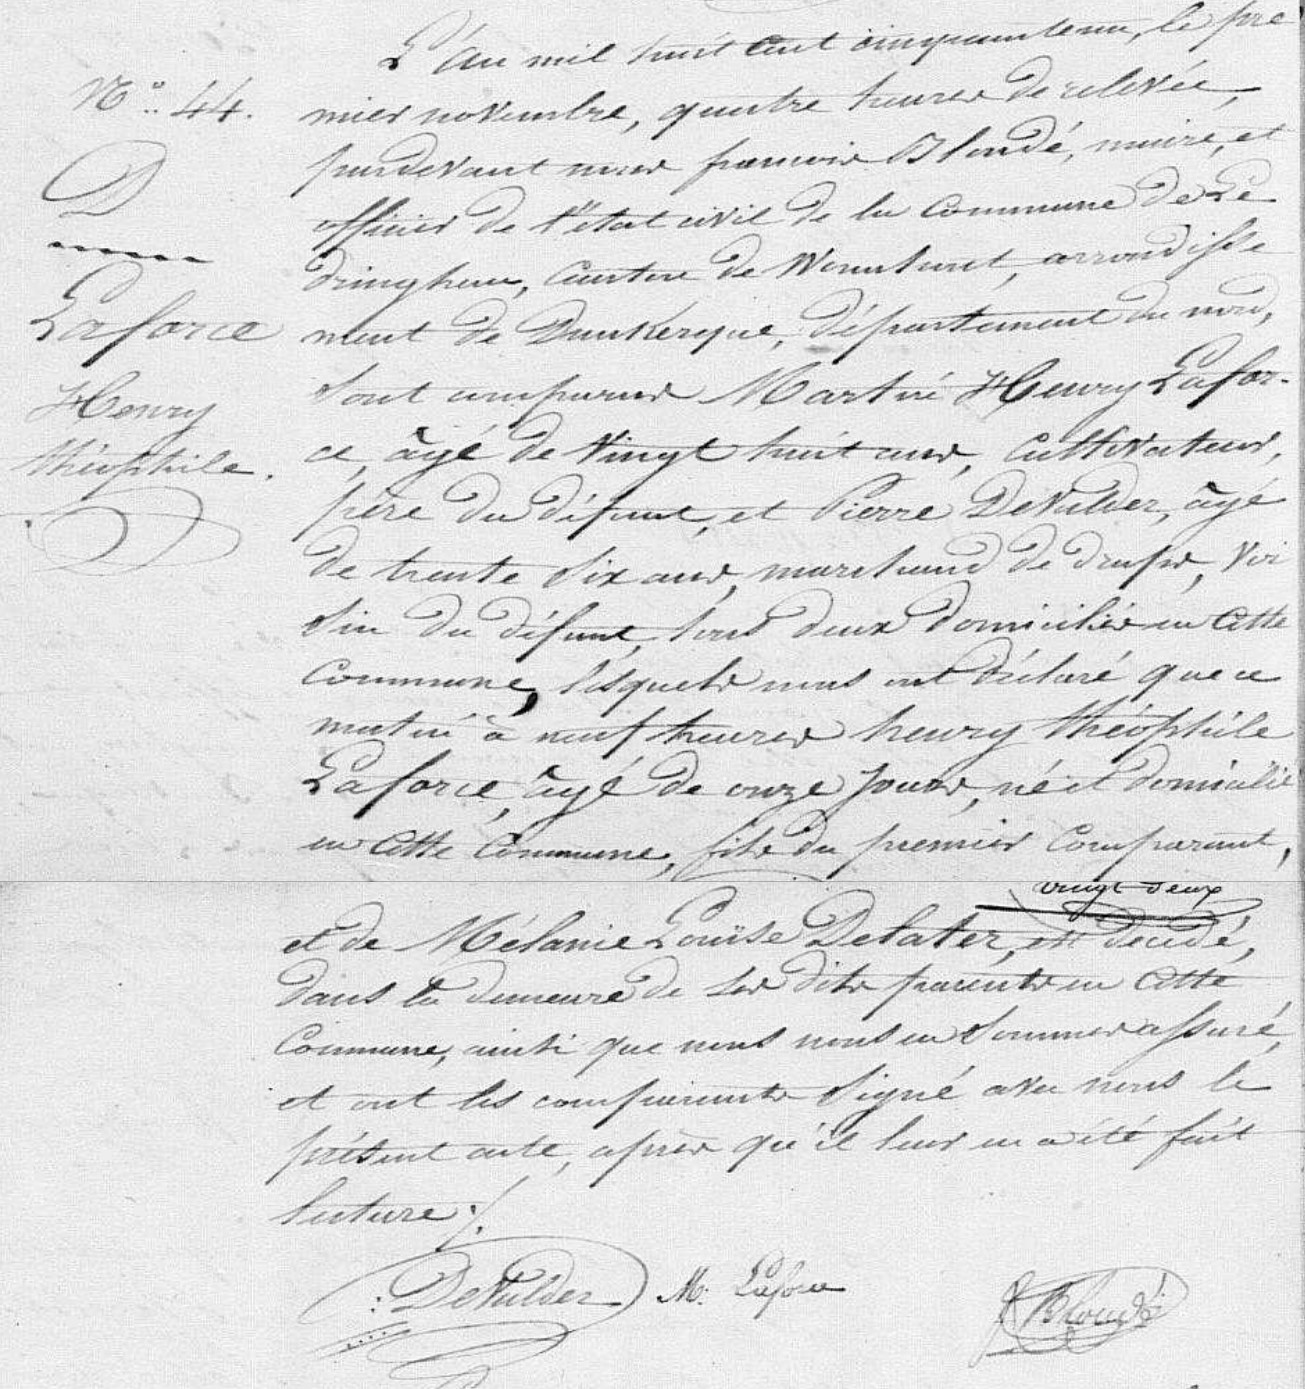 N.° 44.
D
Laforce
Henry
théophile.
L'an mil huit cent cinquante un, le pre
mier novembre, quatre heures de relevée,
pardevant nous françois Blondé, maire, et
officier de l'état civil de la commune de Le
dringhem, Canton de Wormhout, arrondisse
ment de Dunkerque, département du nord,
sont comparus Martin Henry Lafor-
ce, âgé de vingt huit ans, Cultivateur,
père du défunt, et Pierre DeVulder, âgé
de trente six ans, marchand de draps, voi
sin du défunt, tous deux domiciliés en cette
commune, lésquels nous ont déclaré que ce
matin à neuf heures henry théophile
Laforce, âgé de onze jours, né et domicilié
en cette commune, fils du premier comparant,
vingt-deux
et de Mélanie Louise Delater, est décédé,
dans la demeure de ses dits parents en cette
commune, ainsi que nous nous en sommes assuré,
et ont les comparants signé avec nous le
présent acte, après qu'il leur en a été fait
lecture ./.
DeVulder M. Laforce
f Blondé